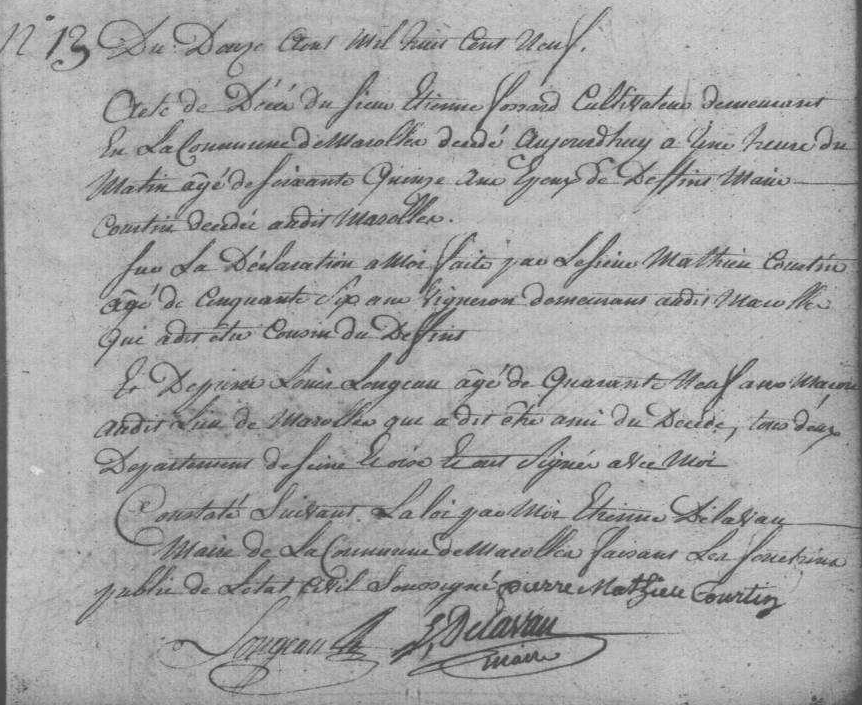 N° 13 Du Douze Aout Mil huit Cent Neuf.
Acte de Décès du sieur Etienne fossard Cultivateur demeurant
En La Commune de Marolles decedé Aujourdhuy a Une heure du
Matin âgé de soixante Quinze ans Epoux de Deffins Marie
Courtin decedée audit Marolles.
sur La Déclaration a Moi faite par Le sieur Mathieu Courtin
âgé de Cinquante Six ans Vigneron demeurans audit Marolles
qui a dit être Cousin du Deffins
Et De pierre Louis Longeau âgé de Quarante Neuf ans Macon
audit Lieu de Marolles qui a dit être ami du Decédé, tous deux
Departement de seine Et oise Et ont Signée avec Moi
Constaté Suivant La loi par Moi Etienne Delavau
Maire de La Commune de Marolles faisans Les fonctions
public de Letat Civil Soussigné pierre Mathieu Courtin
Longeau Delavau
maire